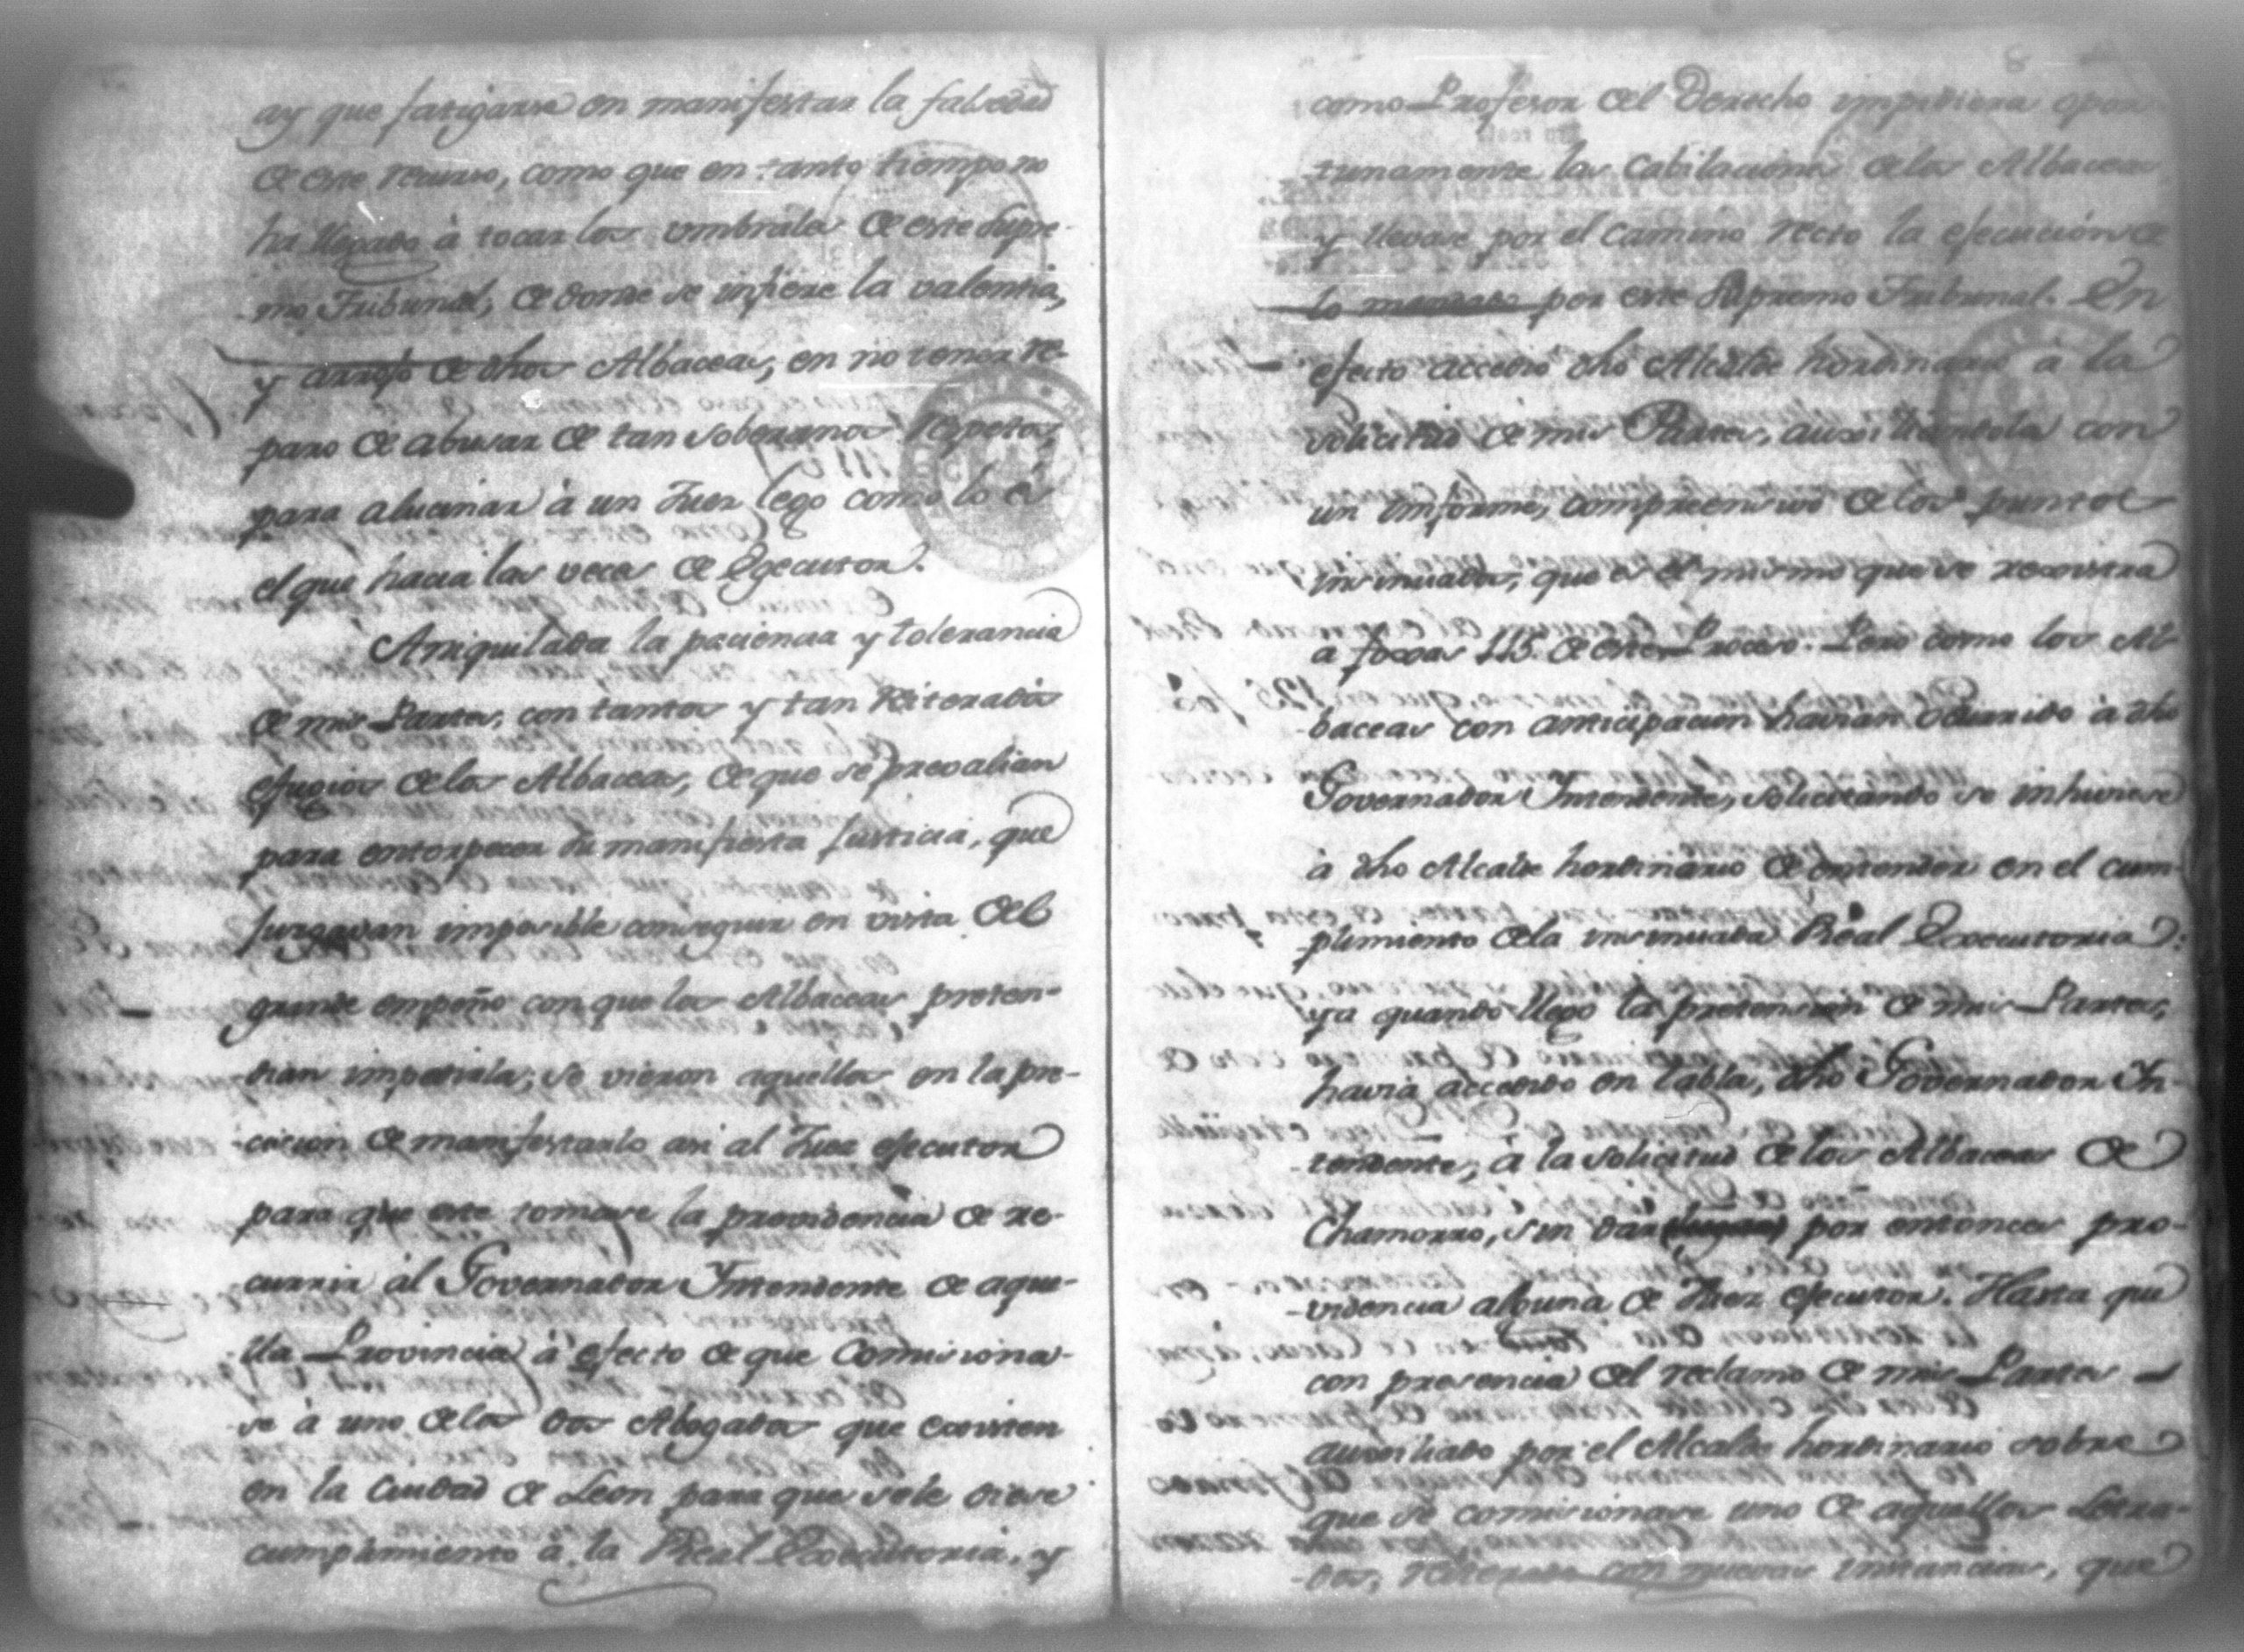 ay que fatigarse en manifestar la falsedad
de este recurso, como que en tanto tiempo no
ha llegado à tocar los umbrales de este Supre-
mo Tribunal, de donde se infiere la valentia,
y arrojo de dhos Albaceas, en no tener re-
paro de abusar de tan soberanos respetos,
para alucinar à un Juez lego como lo és
el que hacia las veces de Egecutor.
Aniquilada la paciencia y tolerancia
de mis Partes, con tantos y tan reiterados
efugios de los Albaceas, de que se prevalian
para entorpecer su manifiesta justicia, que
jusgavan imposible conseguir en vista del
grande empeño con que los Albaceas preten-
dian impedirla; se vieron aquellos en la pre-
cicion de manifestarlo asi al Juez ejecutor
para que este tomase la providencia de re-
currir al Governador Yntendente de aque-
lla Provincia à efecto de que comisiona-
se à uno de los dos Abogados que existen
en la Ciudad de Leon para que se le diese
cumplimiento à la Real Executoria, y
8
como Profesor del Derecho impidiera opor-
tunamente las Cabilaciones de los Albaceas
y llevase por el camino recto la ejecucion de
lo mandado por este Supremo Tribunal. En
efecto accedió dho Alcalde hordinario à la
solicitud de mis Partes, auxiliandola con
un ynforme, compreensivo de los puntos
insinuados, que es el mismo que se rexistra
a foxas 115. de este Proceso. Pero como los Al-
baceas con anticipacion havian ocurrido à dho
Governador Yntendente, solicitando se inhiviese
à dho Alcalde hordinario de entender en el cum-
plimiento de la insinuada Real Executoria:
ya quando llego la pretension de mis Partes,
havia accedido en tabla, dho Governador Yn-
tendente, à la solicitud de los Albaceas de
Chamorro, sin dar por entonces pro-
videncia alguna de Juez ejecutor. Hasta que
con presencia del reclamo de mis Partes
auxiliado por el Alcalde hordinario sobre
que se comisionase uno de aquellos Letra-
dos, con nuevas instancias, que